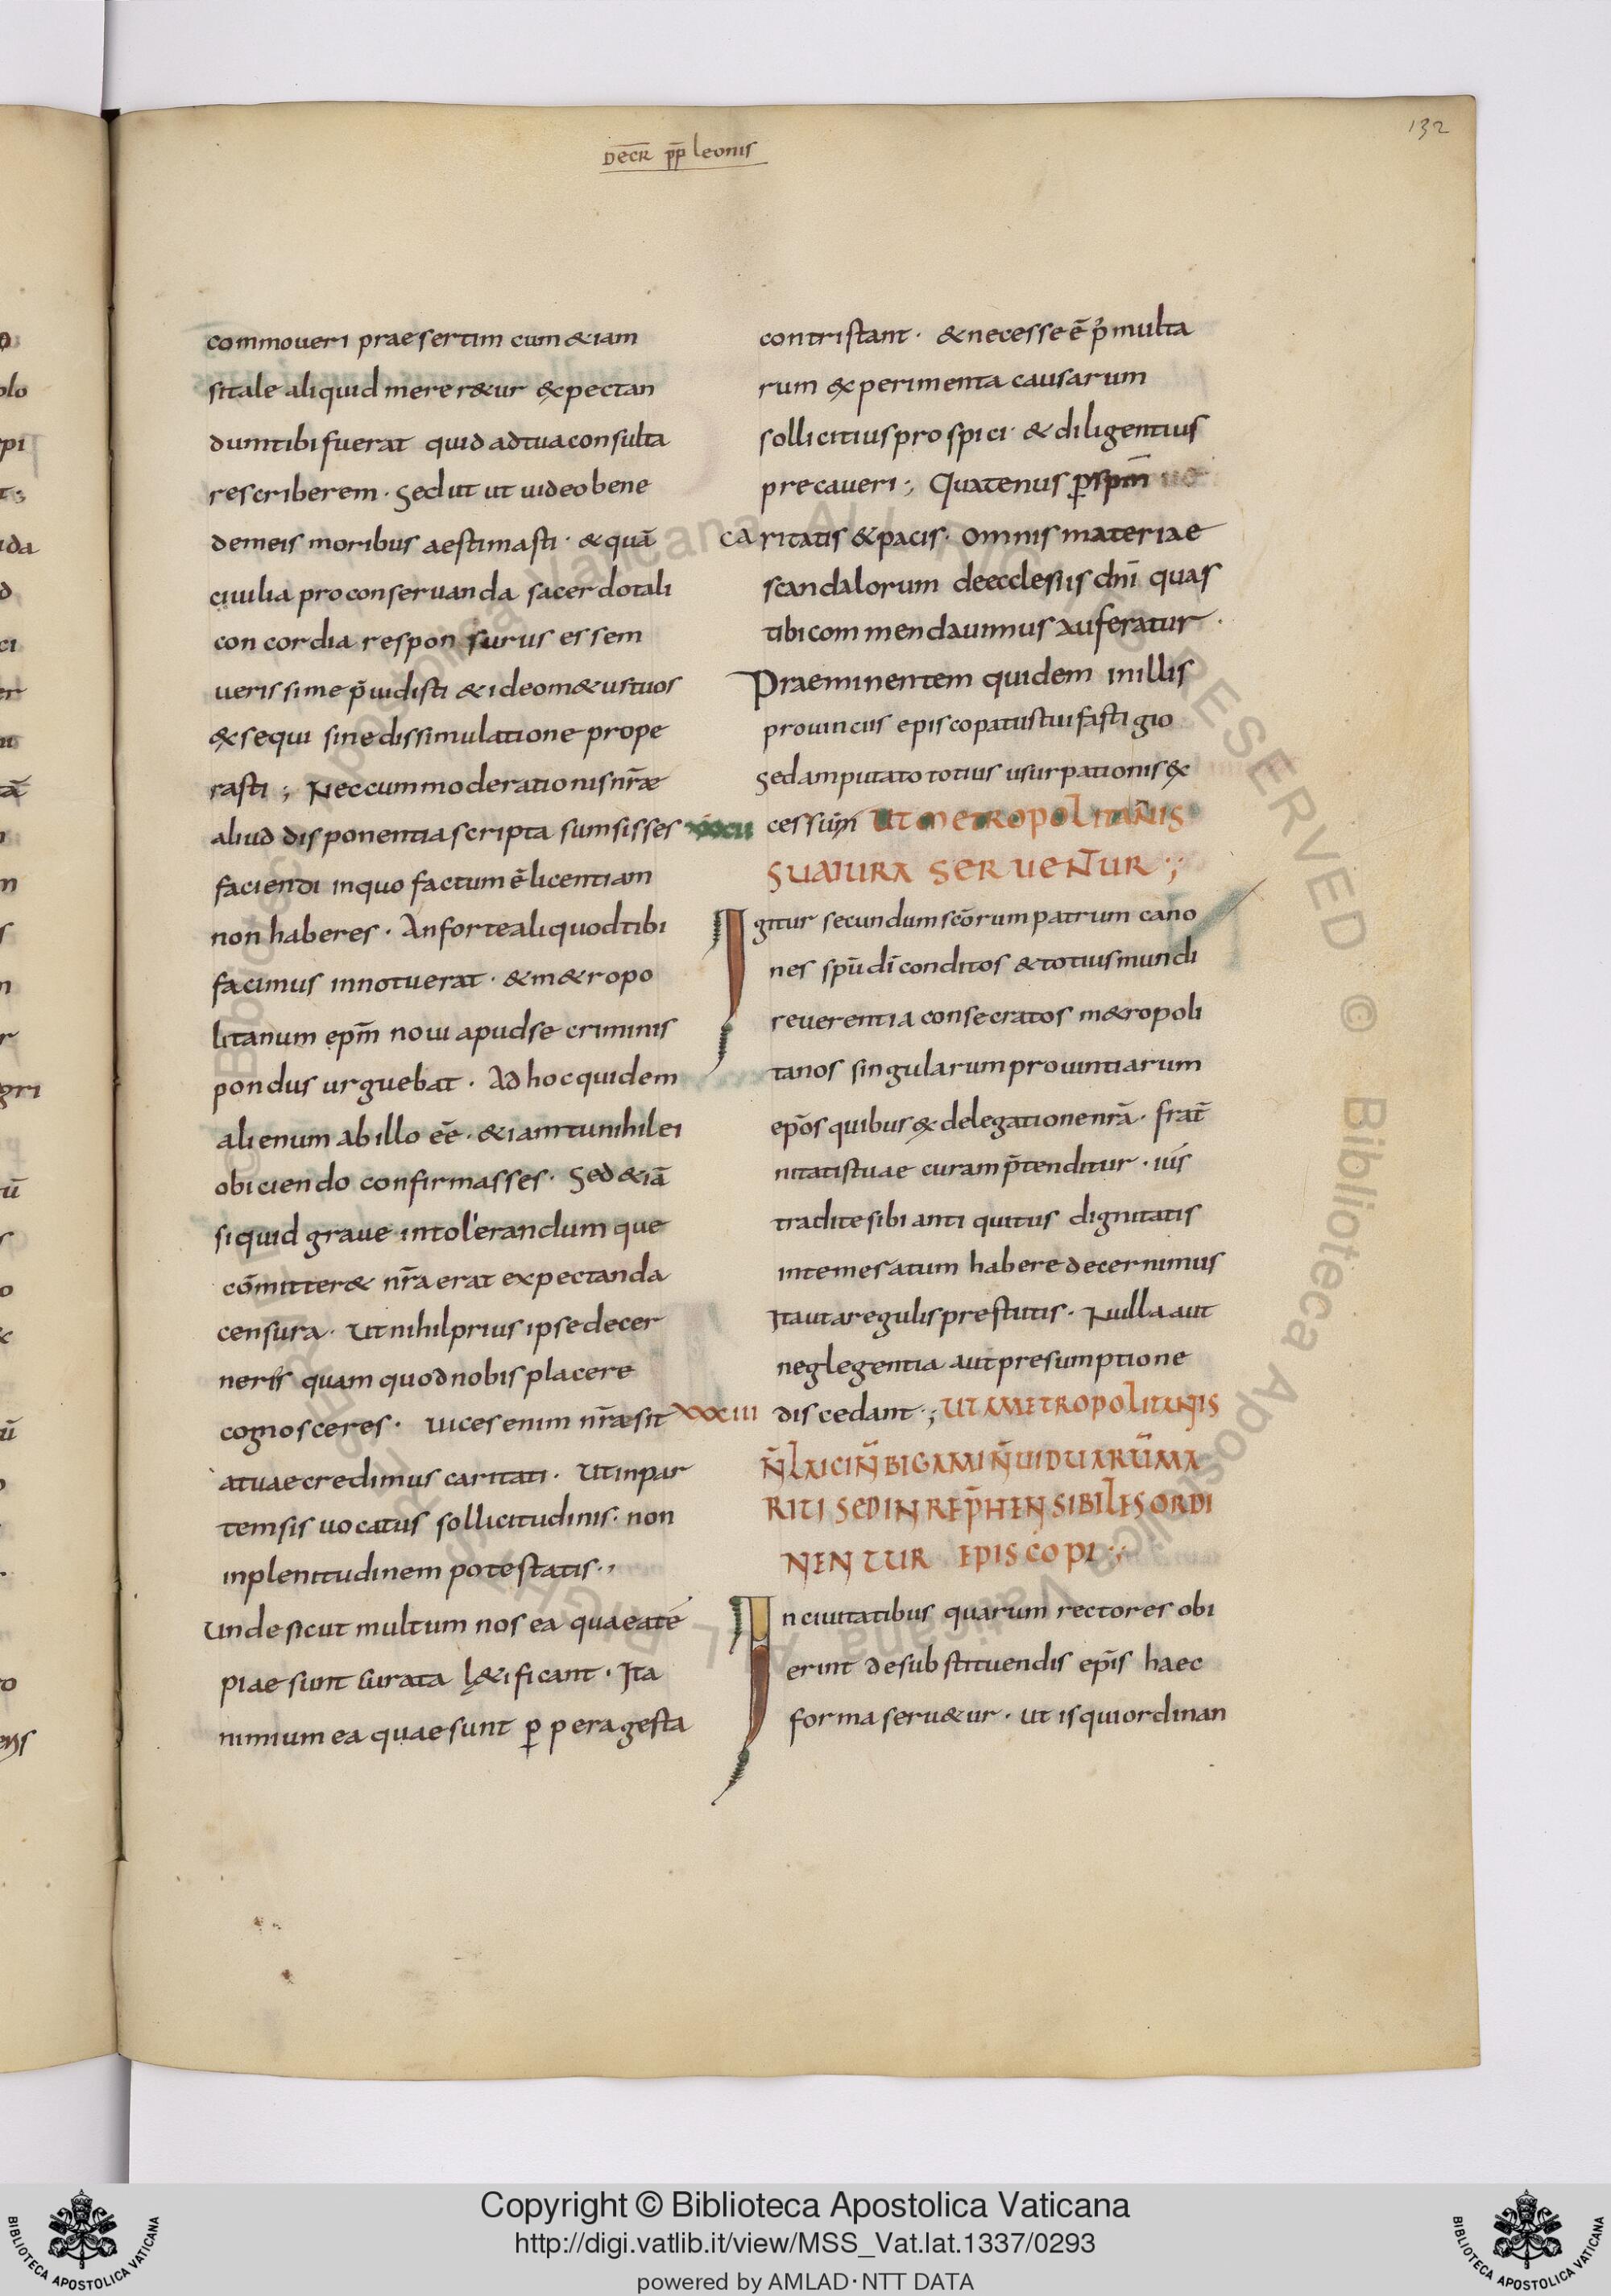 132
DECR̄ pp̄ leonis
commoueri praesertim cum &iam
sitale aliquid merer&ur expectan
dumtibi fuerat quid adtua consulta
rescriberem · Sed ut ut uideo bene
demeis moribus aestimasti · & quā
ciuilia proconseruanda sacerdotali
concordia responsurus essem
uerissime p̄uidisti & ideo m&us tuos
exsequi sine dissimulatione prope
rasti ; Nec cum moderationis nr̄ae
aliud disponentia scripta sumsisses
faciendi inquo factum ē licentiam
non haberes · An forte aliquod tibi
facinus innotuerat · & m&ropo
litanum ep̄m noui apud se criminis
pondus urguebat · Ad hoc quidem
alienum ab illo eē · & iam tu nihil ei
obiciendo confirmasses · Sed &iā
siquid graue intolerandum que
cōmitter& nr̄a erat expectanda
censura · Ut nihil prius ipse decer
neris quam quod nobis placere
cognosceres · uices enim nr̄ae sit
atuae credimus caritati · Ut in par
tem sis uocatus sollicitudinis · non
inplenitudinem potestatis ·,
Unde sicut multum nos ea quae a te
piae sunt curata l&ificant · Ita
nimium ea quae sunt ꝑperagesta
contristant · & necesse ē p̄ multa
rum experimenta causarum
sollicitius prospici · & diligentius
precaueri ; Quatenus ꝑ sp̄m
caritatis & pacis · omnis materiae
scandalorum de ecclesiis dn̄i quas
tibi commendauimus auferatur ·
Praeminentem quidem inillis
prouinciis episcopatus tui fastigio
Sed amputato totius usurpationis ex
cessum UT METROPOLITANIS
SUA IURA SERUENTUR ·;
XXXII
Igitur secundum scōrum patrum cano
nes sp̄u dī conditos & totius mundi
reuerentia consecratos m&ropoli
tanos singularum prouintiarum
ep̄os quibus ex delegatione nr̄a · frat̄
nitatis tuae curam p̄tenditur · ius
tradite sibi antiquitus dignitatis
intemesatum habere decernimus
Ita ut a regulis prestitutis · Nulla aut
neglegentia aut presumptione
discedant ·; UT AMETROPOLITANIS
XXXIII
N̄ LAICI N̄ BIGAMI N̄ UIDUARŪ MA
RITI SED INREP̄HENSIBILES ORDI
NENTUR EPISCOPI ·;
In ciuitatibus quarum rectores obi
erint de substituendis ep̄is haec
forma seru&ur · ut is qui ordinan
Copyright © Biblioteca Apostolica Vaticana
http://digi.vatlib.it/view/MSS_Vat.lat.1337/0293
powered by AMLAD · NTT DATA
BIBLIOTECA APOSTOLICA VATICANA
BIBLIOTECA APOSTOLICA VATICANA